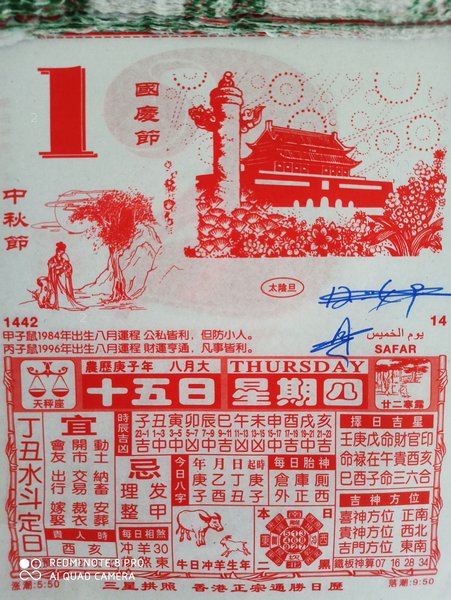 1
國慶節
中秋節
太陰旦
1442
14
يوم الخميس
SAFAR
甲子鼠1984年出生八月運程 公私皆利，但防小人。
丙子鼠1996年出生八月運程 財運亨通，凡事皆利。
農歷庚子年 八月大
THURSDAY
天秤座
十五日 星期四
廿二寒露
丁丑水斗定日
宜
動土 開市 會友
納畜 交易 出行
安葬 裁衣 嫁娶
貴人時
酉 亥
時辰吉凶
子丑寅卯辰巳午未申酉戌亥
23-1 1-3 3-5 5-7 7-9 9-11 11-13 13-15 15-17 17-19 19-21 21-23
忌
理发
整甲
每日相煞
沖羊30
煞東
今日八字
年月日起時
庚乙丁庚
子酉丑子
每日胎神
倉庫廁
外正西
擇日吉星
壬庚戊命財官印
命祿在午貴酉亥
吉神方位
喜神方位 正南
貴神方位 西北
吉門方位 東南
鐵板神算07 16 28 34
本 南
二 黑
牛日冲羊生年
漲潮:5:50
三星拱照 香港正宗通勝日歷
落潮:9:50
REDMI NOTE 8 PRO
AI QUAD CAMERA